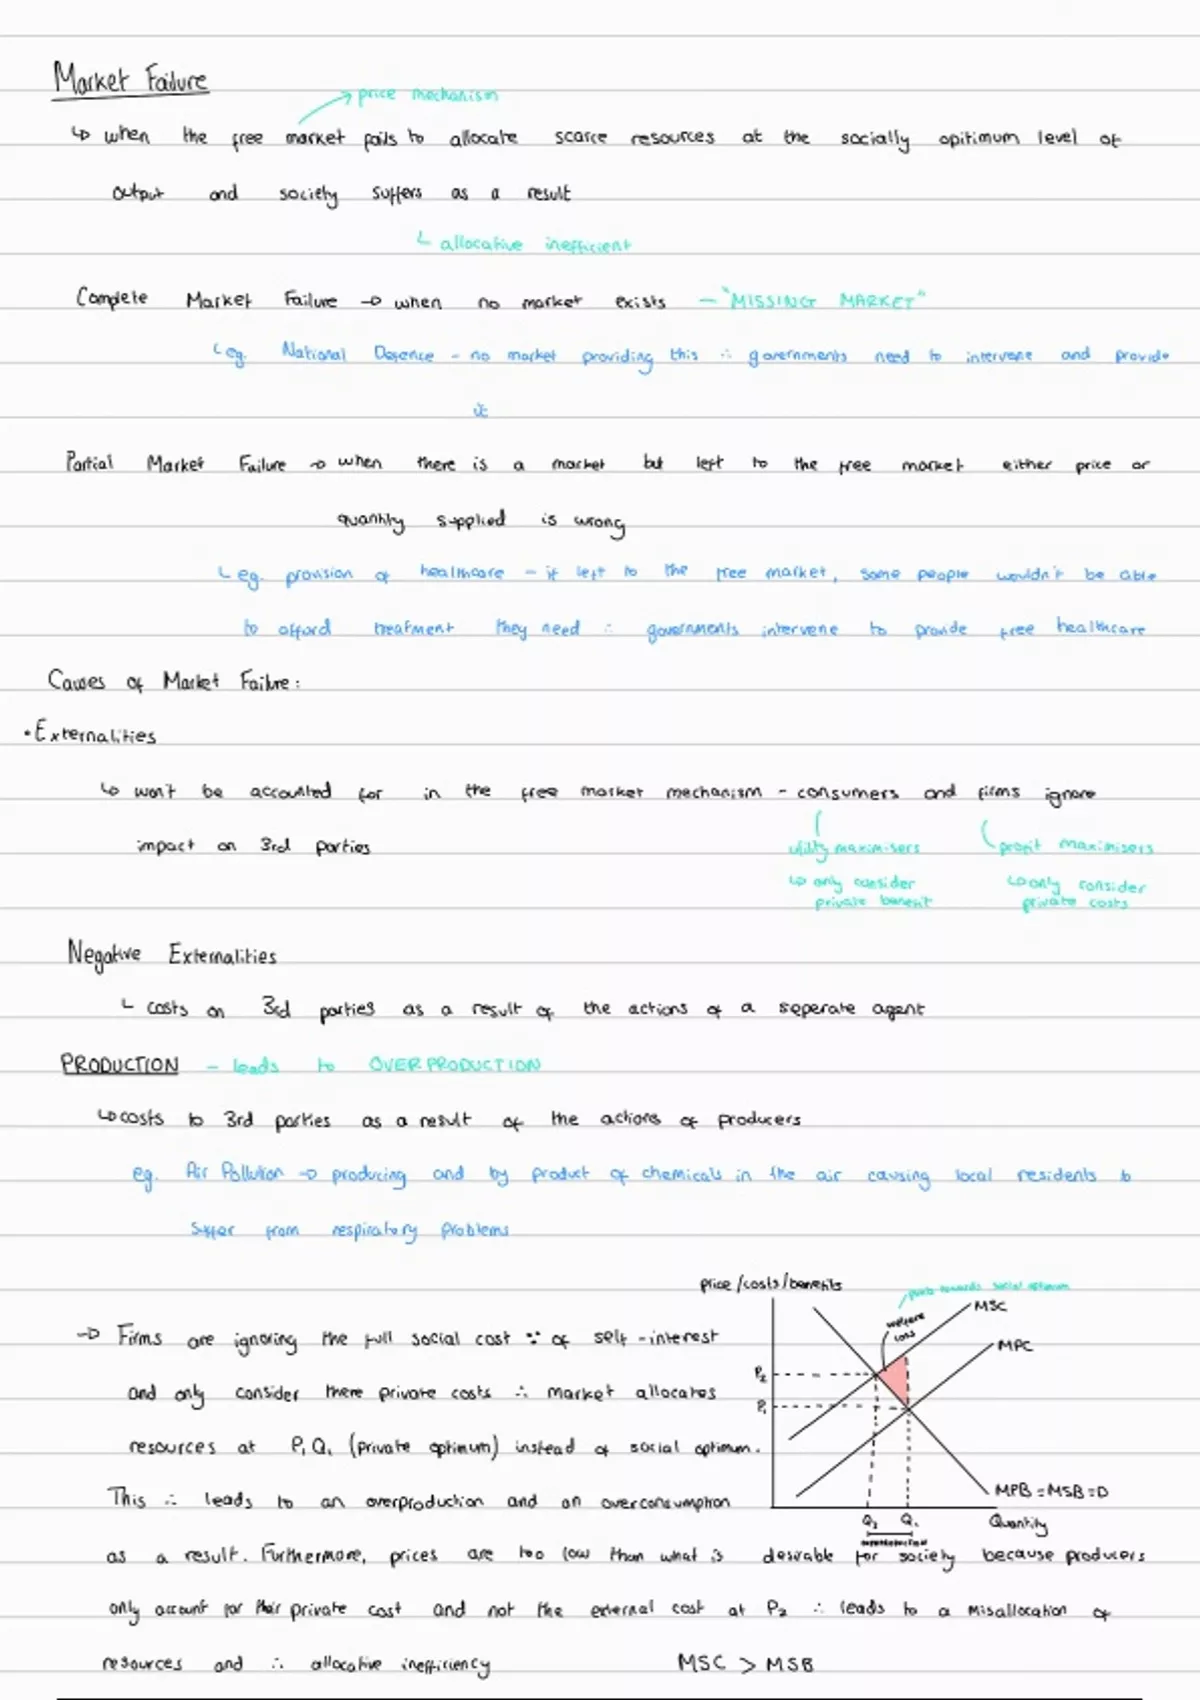 Market Failure
price mechanism
↳ when the free market fails to allocate scarce resources at the socially opitimum level of
output and society suffers as a result
└ allocative inefficient
Complete Market Failure → when no market exists - "MISSING MARKET"
└ eg. National Defence - no market providing this ∴ governments need to intervene and provide
it
Partial Market Failure → when there is a market but left to the free market either price or
quantity supplied is wrong
└ eg. provision of healthcare - if left to the free market, some people wouldn't be able
to afford treatment they need ∴ governments intervene to provide free healthcare
Causes of Market Failure:
• Externalities
↳ won't be accounted for in the free market mechanism - consumers and firms ignore
impact on 3rd parties
utility maximisers profit maximisers
↳ only consider ↳ only consider
private benefit private costs
Negative Externalities
└ costs on 3rd parties as a result of the actions of a seperate agent
PRODUCTION - leads to OVERPRODUCTION
↳ costs to 3rd parties as a result of the actions of producers
eg. Air Pollution → producing and by product of chemicals in the air causing local residents to
suffer from respiratory problems
price/costs/benefits
points towards social optimum
MSC
welfare
loss
MPC
P2
P1
MPB = MSB = D
Q2 Q1
Quantity
overproduction
→ Firms are ignoring the full social cost ∵ of self-interest
and only consider there private costs ∴ market allocates
resources at P1 Q1 (private optimum) instead of social optimum.
This ∴ leads to an overproduction and an overconsumption
as a result. Furthermore, prices are too low than what is desirable for society because producers
only account for their private cost and not the external cost at P2 ∴ leads to a misallocation of
resources and ∴ allocative inefficiency MSC > MSB